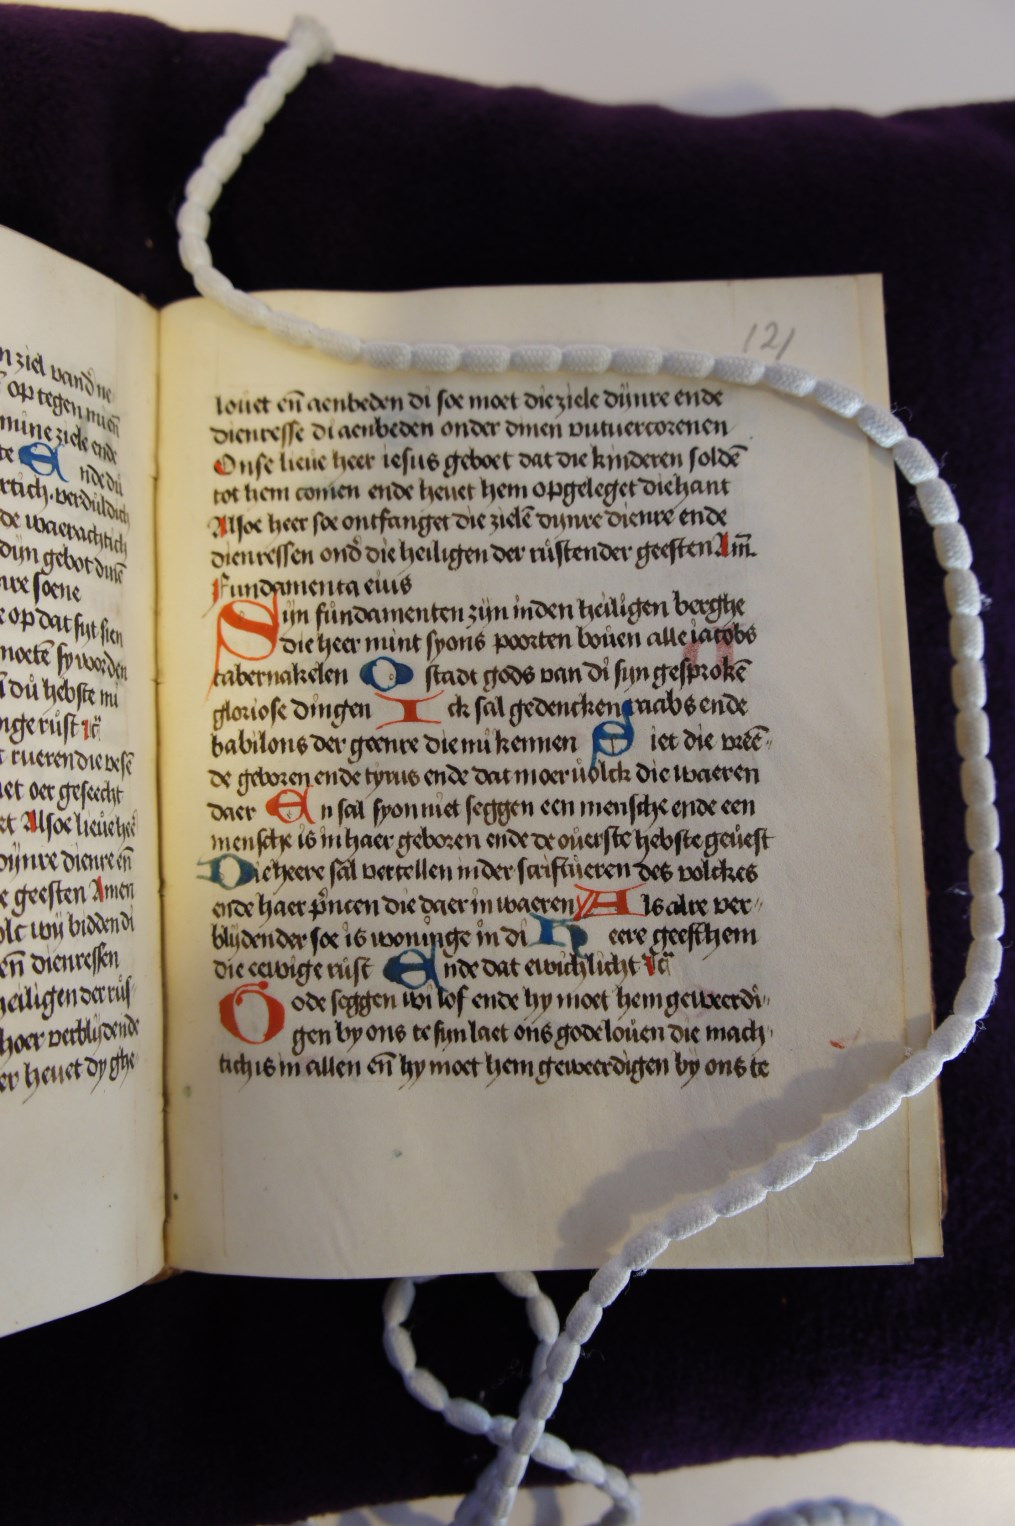 n ziel vand ne
op tegen mien̄
mine ziele ende
te Ende dū
rtich. verduldich
de waerachtich
dijn gebot dinē
nre soene
op dat sijt sien
moetē sy voorden
dū hebste mi
nge růst
rueren die besē
et oer geslecht
et Alsoe lieue heē
dijnre dienre en̄
e geesten Amen
olc wij bidden di
en̄ dienressen
heiligen der růs-
hoer verblijdende
er heuet dy ghe
121
louet en̄ aenbeden di soe moet die ziele dijnre ende
dienresse di aenbeden onder dinen vutuercorenen
Onse lieue heer iesus geboet dat die kinderen soldē
tot hem comen ende heuet hem opgeleget die hant
Alsoe heer soe ontfanget die zielē dijnre dienre ende
dienressen ond̄ die heiligen der růstender geesten Am̄.
Fundamenta eius
Sijn fůndamenten zijn inden heiligen berghe
die heer mint syons poorten boůen alle iacobs
tabernakelen O stadt gods van di sijn gesprokē
gloriose dingen Ick sal gedencken raabs ende
babilons der geenre die mi kennen Siet die vreē-
de geboren ende tyrus ende dat moer ůolck die waeren
daer En sal syon niet seggen een mensche ende een
mensche is in haer geboren ende de oůerste hebste geůest
Die heere sal vertellen in der scriftůeren des volckes
ende haer p̄ncen die daer in waeren Als alre ver-
blijdender soe is woninge in di Heere geeft hem
die eewige růst Ende dat ewich licht
Gode seggen wi lof ende hy moet hem geweerdi-
gen by ons te sijn laet ons gode loůen die mach-
tich is in allen en̄ hy moet hem geweerdigen by ons te